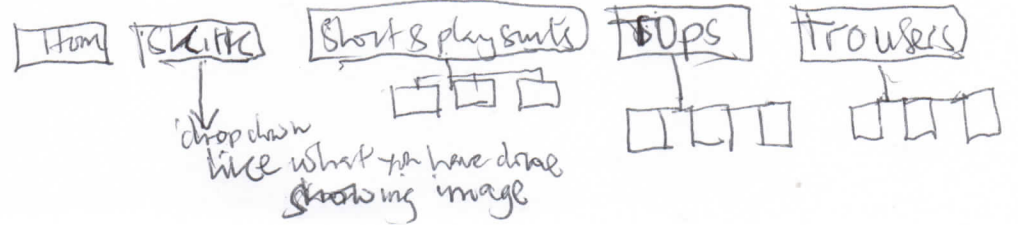 Hom Skirts Short & playsuits Tops Trousers
drop down
like what you have done
showing image